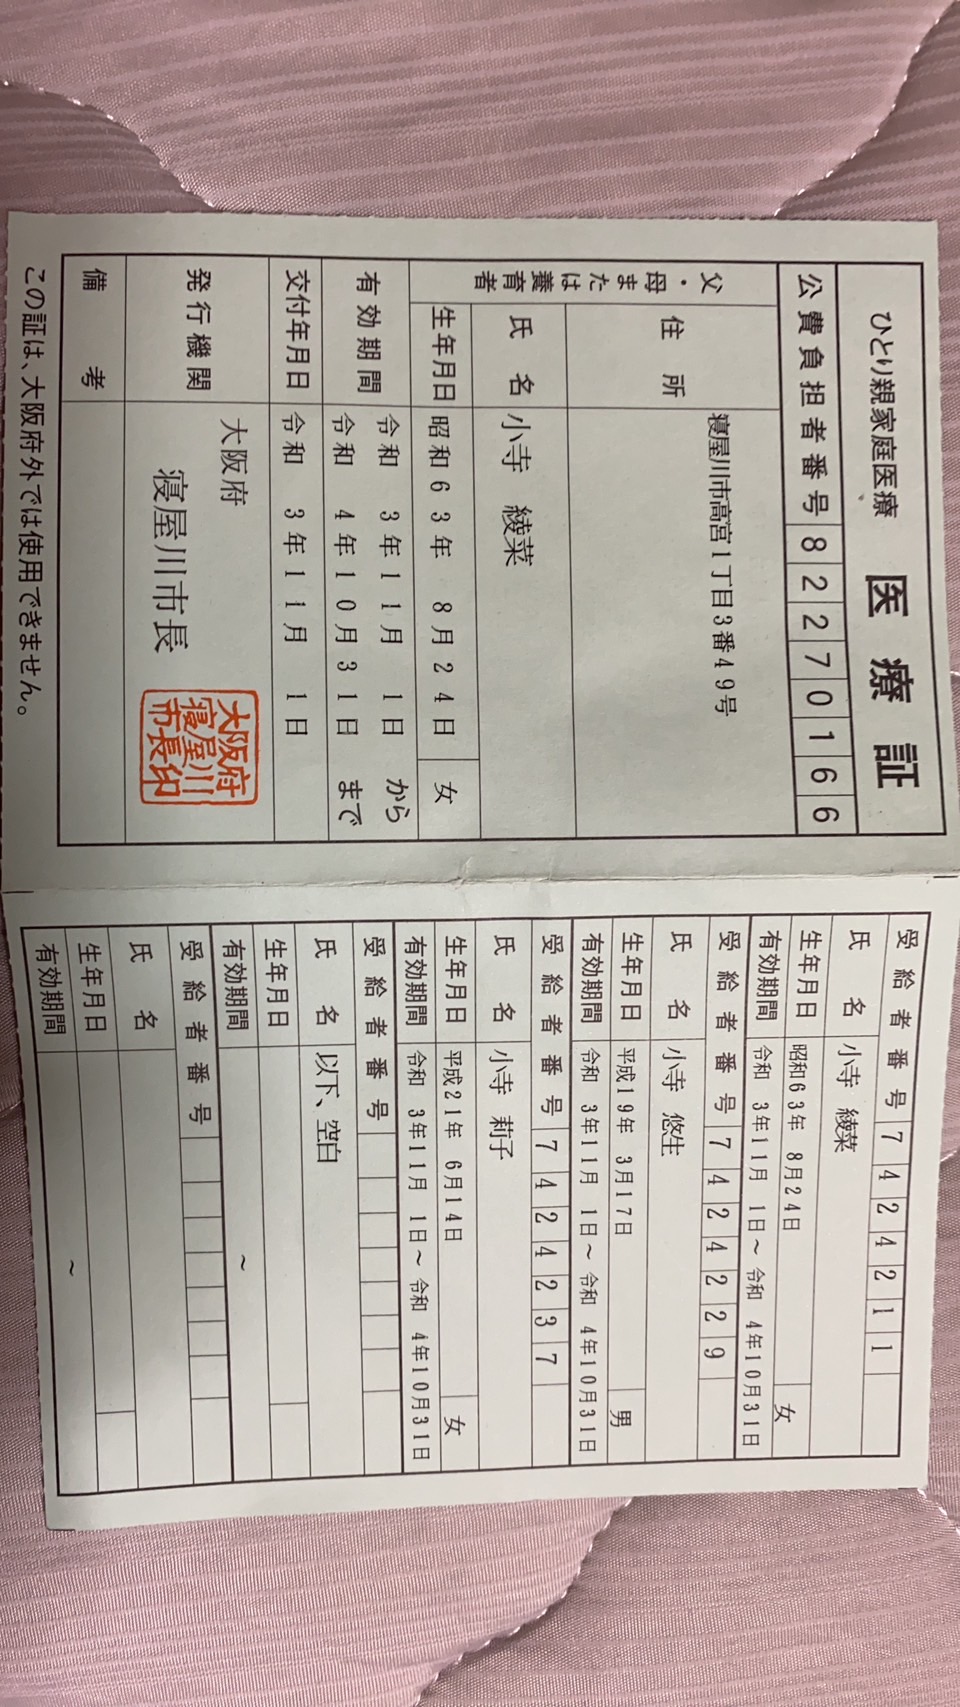 ひとり親家庭医療 医療証
公費負担者番号 82270166
父・母または養育者
住所 寝屋川市高宮1丁目3番49号
氏名 小寺 綾菜
生年月日 昭和63年 8月24日 女
有効期間 令和 3年11月 1日 から
令和 4年10月31日 まで
交付年月日 令和 3年11月 1日
発行機関 大阪府
寝屋川市長
大阪府
寝屋川
市長印
備考
この証は、大阪府外では使用できません。
受給者番号 7424211
氏名 小寺 綾菜
生年月日 昭和63年 8月24日 女
有効期間 令和 3年11月 1日~令和 4年10月31日
受給者番号 7424229
氏名 小寺 悠生
生年月日 平成19年 3月17日 男
有効期間 令和 3年11月 1日~令和 4年10月31日
受給者番号 7424237
氏名 小寺 莉子
生年月日 平成21年 6月14日 女
有効期間 令和 3年11月 1日~令和 4年10月31日
受給者番号
氏名 以下、空白
生年月日
有効期間 ~
受給者番号
氏名
生年月日
有効期間 ~